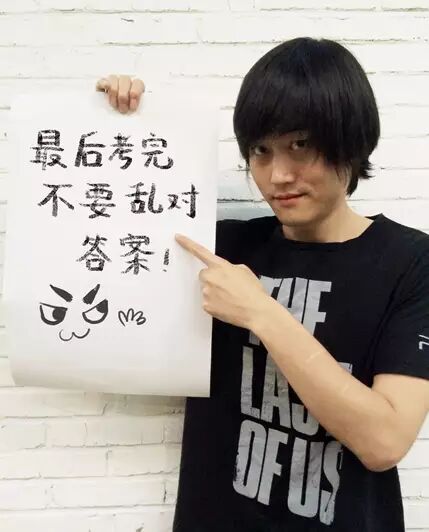 最后考完
不要乱对
答案!
THE
LAST
OF US